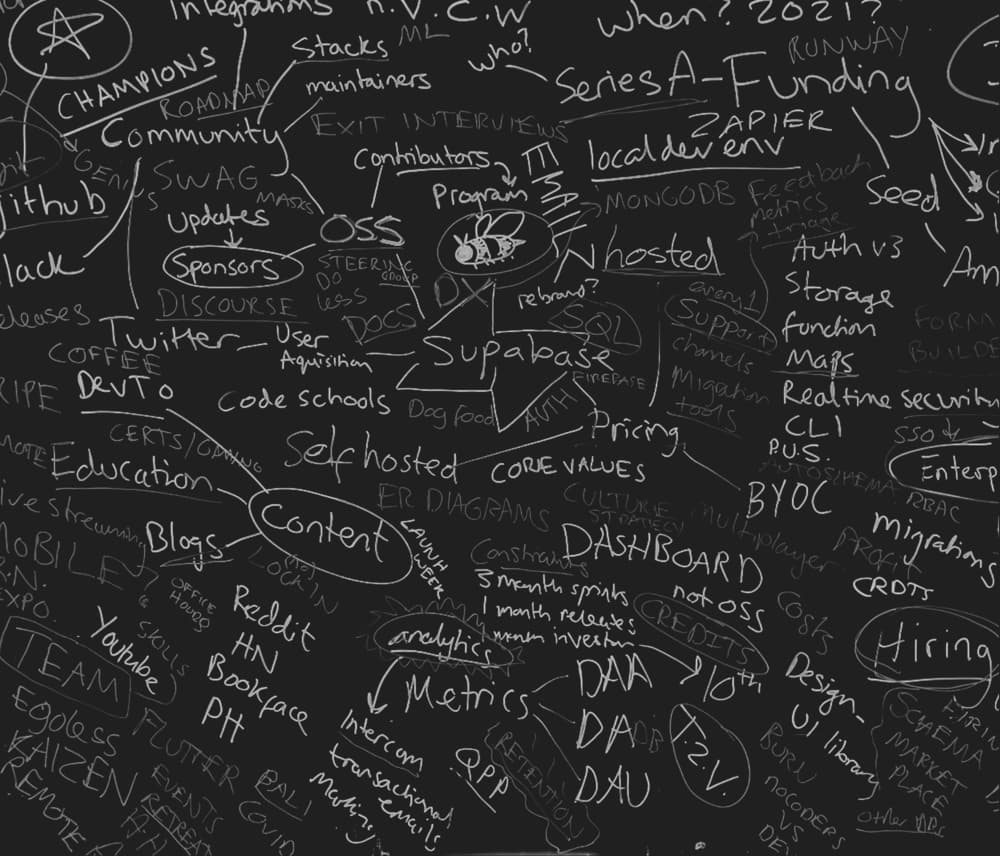 Integrations
N.V.C.W
when? 2021?
Stacks
ML
who?
RUNWAY
CHAMPIONS
ROADMAP
maintainers
Series A-Funding
Community
EXIT INTERVIEWS
ZAPIER
Contributors
local dev env
SWAG
MASKS
Program
EMAIL
MONGODB
Feedback
metrics
triage
Seed
Github
Updates
OSS
Sponsors
STEERING
GROUP
DO
less
N hosted
Auth v3
Storage
function
Maps
Realtime security
CLI
P.U.S.
DISCOURSE
DOCS
DX
rebrand?
SQL
every1
Support
channels
Migration
tools
Twitter
User
Aquisition
Supabase
FIREBASE
COFFEE
DevTo
Code schools
Dog food
AUTH
Pricing
CERTS/GAMING
Self hosted
CORE VALUES
Education
SSO
Enterp
AUTOSCHEMA
RBAC
BYOC
ER DIAGRAMS
CULTURE
STRATEGY
multi
player
Content
LAUNCH
WEEK
Blogs
(no)
LOCK IN
Constraints
DASHBOARD
not OSS
migrations
PROFIT
CRDTS
MOBILE
OFFICE
HOURS
3 month sprints
1 month releases
CREDITS
Costs
EXPO
Youtube
& SKILLS
Reddit
HN
Bookface
PH
analytics
Hiring
TEAM
Metrics
DAA
10th
Design
UI library
Egoless
KAIZEN
REMOTE
FLUTTER
EVENTS
RETREAT
BALI
COVID
Intercom
transactional
emails
QPP
RETENTION
DADB
DAU
T.2.V.
BURN
nocoders
VS
SCHEMA
MARKET
PLACE
other